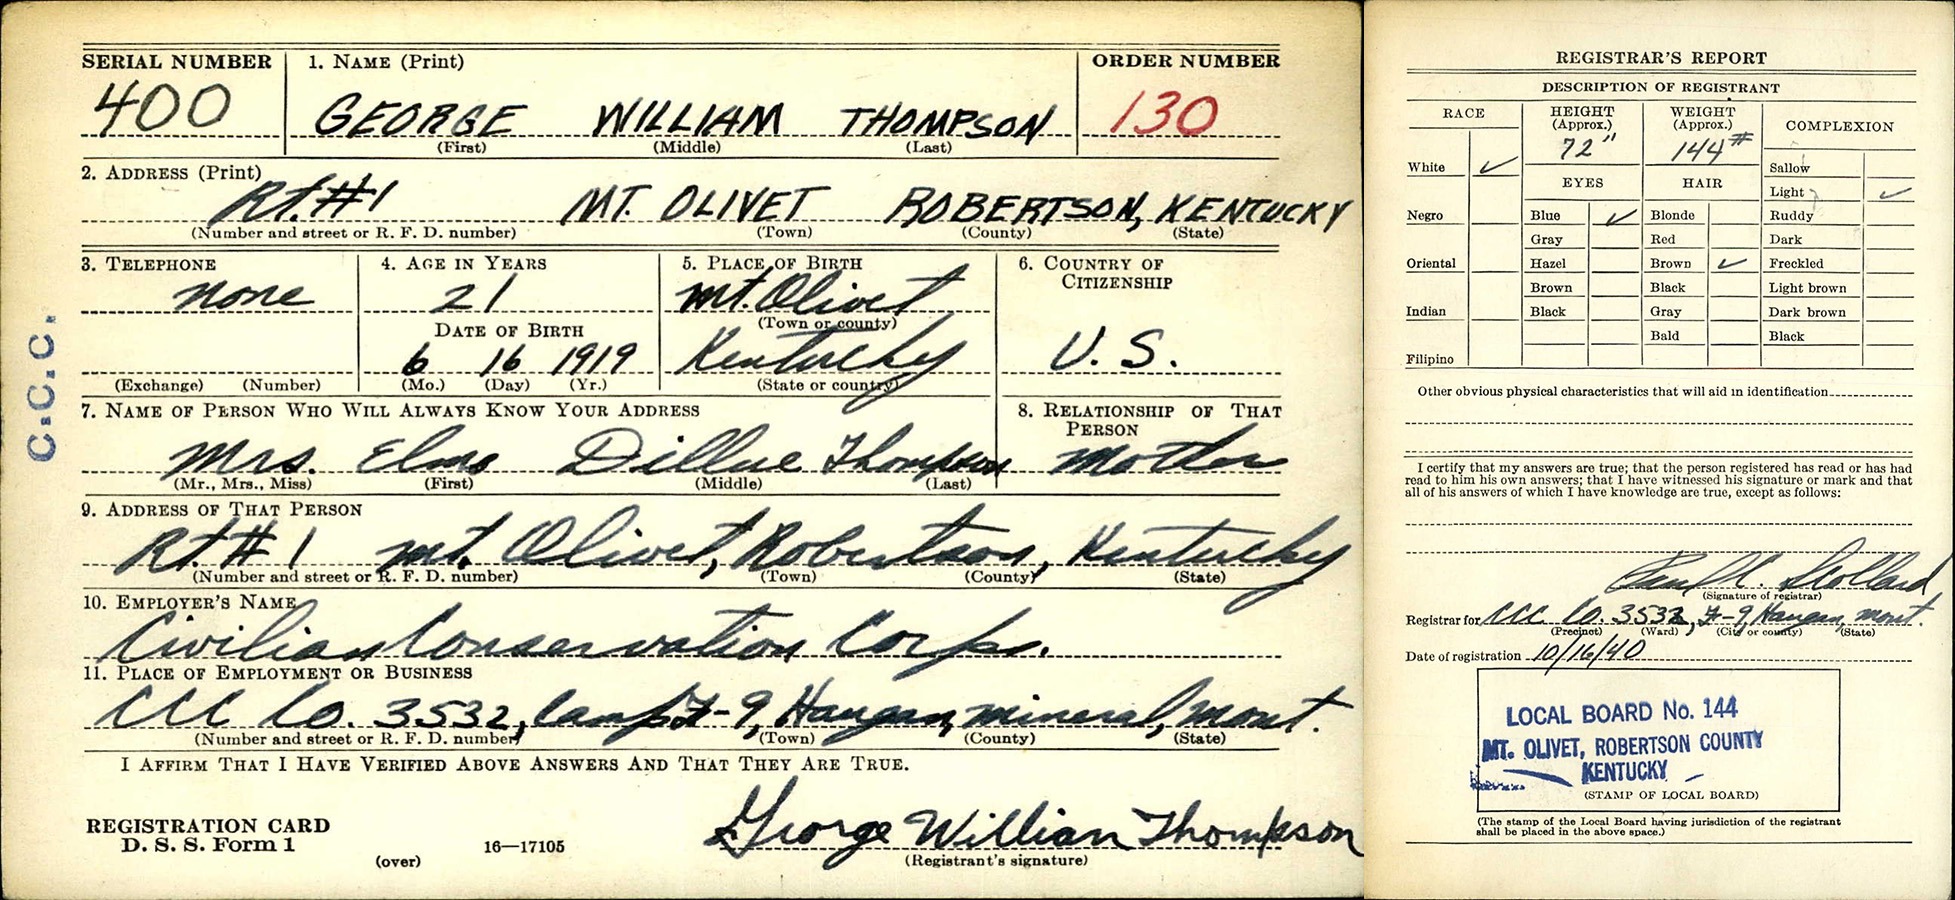 SERIAL NUMBER 1. NAME (Print) ORDER NUMBER
400 GEORGE WILLIAM THOMPSON 130
(First) (Middle) (Last)
2. ADDRESS (Print)
Rt. #1 MT. OLIVET ROBERTSON, KENTUCKY
(Number and street or R. F. D. number) (Town) (County) (State)
3. TELEPHONE 4. AGE IN YEARS 5. PLACE OF BIRTH 6. COUNTRY OF CITIZENSHIP
none 21 Mt. Olivet
(Town or county)
DATE OF BIRTH
6 16 1919 Kentucky U. S.
(Exchange) (Number) (Mo.) (Day) (Yr.) (State or country)
7. NAME OF PERSON WHO WILL ALWAYS KNOW YOUR ADDRESS 8. RELATIONSHIP OF THAT PERSON
Mrs. Thompson Mother
(Mr., Mrs., Miss) (First) (Middle) (Last)
9. ADDRESS OF THAT PERSON
Rt. #1 Mt. Olivet, Robertson, Kentucky
(Number and street or R. F. D. number) (Town) (County) (State)
10. EMPLOYER'S NAME
Civilian Conservation Corps.
11. PLACE OF EMPLOYMENT OR BUSINESS
CCC Co. 3532, Camp F-9, Haugan, Mineral, Mont.
(Number and street or R. F. D. number) (Town) (County) (State)
I AFFIRM THAT I HAVE VERIFIED ABOVE ANSWERS AND THAT THEY ARE TRUE.
George William Thompson
REGISTRATION CARD
D. S. S. Form 1 (over) 16—17105 (Registrant's signature)
C.C.C.
REGISTRAR'S REPORT
DESCRIPTION OF REGISTRANT
RACE HEIGHT (Approx.) WEIGHT (Approx.) COMPLEXION
72" 144#
White ✓ Sallow
EYES HAIR Light ✓
Negro Blue ✓ Blonde Ruddy
Gray Red Dark
Oriental Hazel Brown ✓ Freckled
Brown Black Light brown
Indian Black Gray Dark brown
Bald Black
Filipino
Other obvious physical characteristics that will aid in identification
I certify that my answers are true; that the person registered has read or has had
read to him his own answers; that I have witnessed his signature or mark and that
all of his answers of which I have knowledge are true, except as follows:
(Signature of registrar)
Registrar for CCC Co. 3532, F-9, Haugan, Mont.
(Precinct) (Ward) (City or county) (State)
Date of registration 10/16/40
LOCAL BOARD No. 144
MT. OLIVET, ROBERTSON COUNTY
KENTUCKY
(STAMP OF LOCAL BOARD)
(The stamp of the Local Board having jurisdiction of the registrant
shall be placed in the above space.)